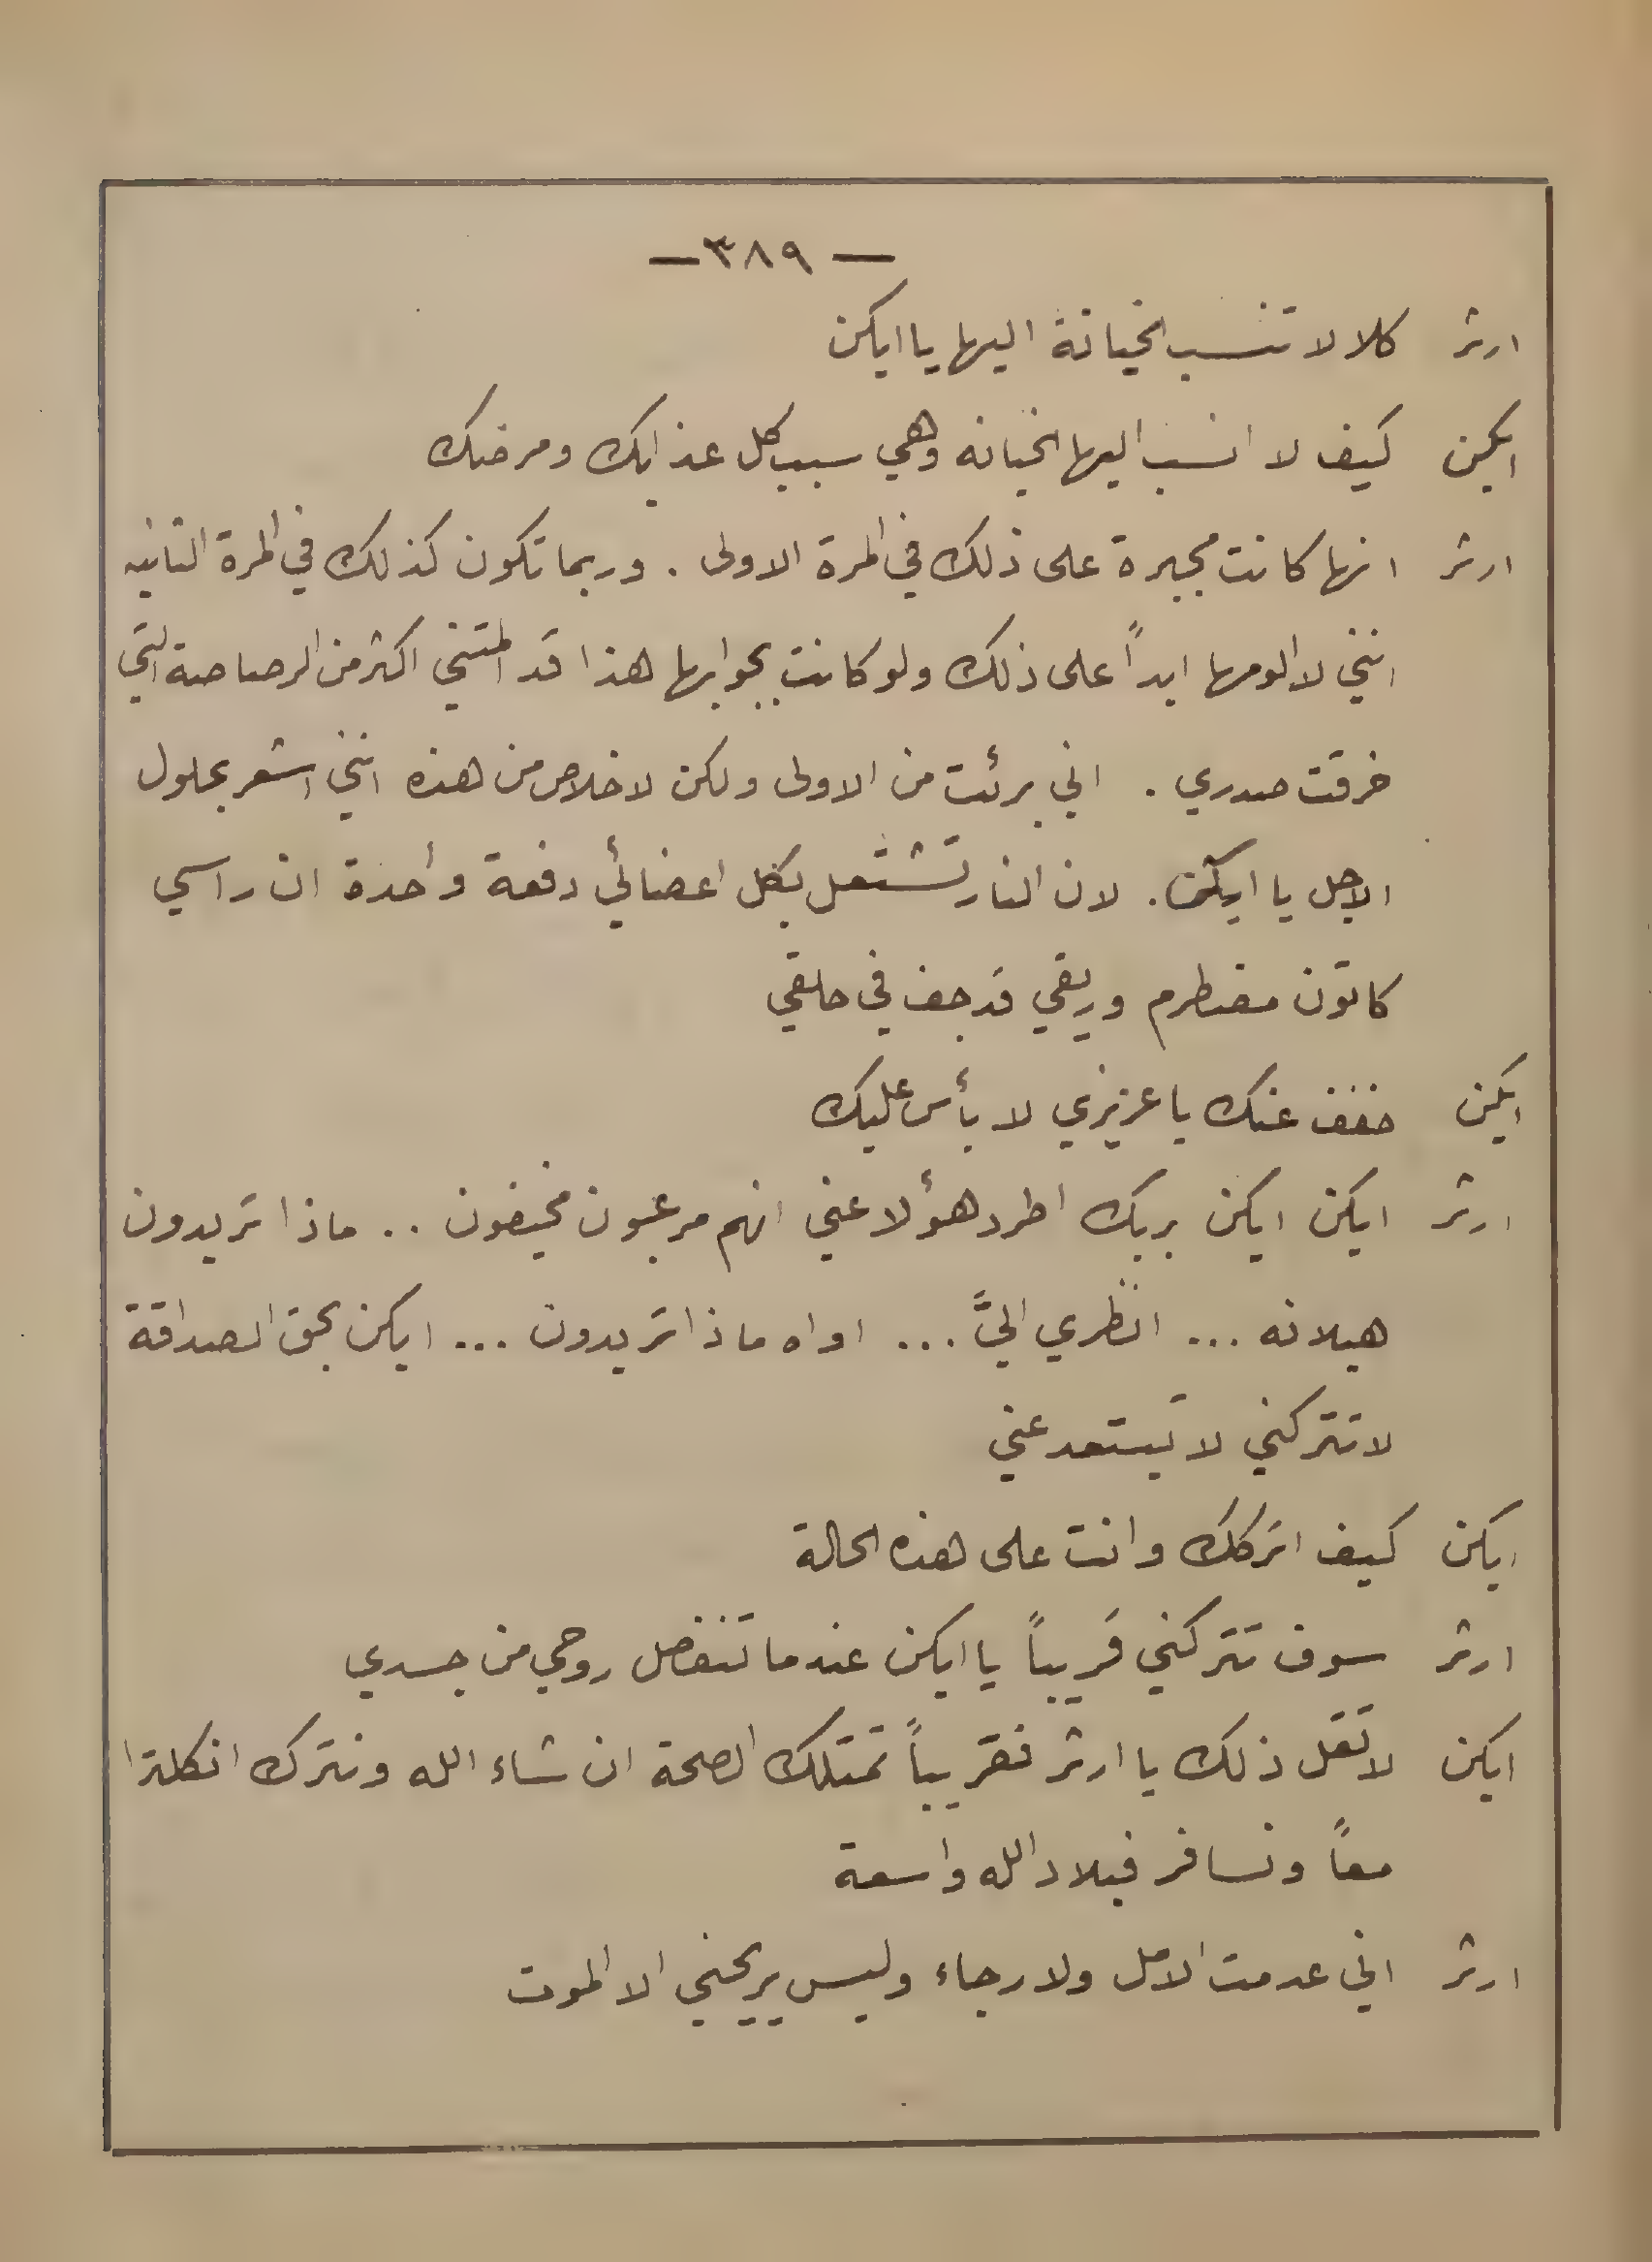 — ٣٨٩ —
ارثر كلا لا تنسب الخيانة اليها يا ايكن
ايكن كيف لا انسب اليها الخيانه وهي سبب كل عذابك ومرضك
ارثر انها كانت مجبرة على ذلك في المرة الاولى . وربما تكون كذلك في المرة الثانيه
انني لا الومها ابداً على ذلك ولو كانت بجوابها هذا قد المتني اكثر من الرصاصة التي
خرقت صدري . اني برئت من الاولى ولكن لا خلاص من هذه انني اشعر بحلول
الاجل يا ايكن . لان النار تشتعل بكل اعضائي دفعة واحدة ان راسي
كاتون مضطرم وريقي قد جف في حلقي
ايكن خفف عنك يا عزيزي لا بأس عليك
ارثر ايكن ايكن بربك اطرد هؤلا عني انهم مرعبون مخيفون .. ماذا تريدون
هيلانه ... انظري اليَّ ... اواه ماذا تريدون ... ايكن بحق الصداقة
لا تتركني لا تبتعد عني
ايكن كيف اتركك وانت على هذه الحالة
ارثر سوف تتركني قريباً يا ايكن عندما تنفصل روحي من جسدي
ايكن لا تقل ذلك يا ارثر فقريباً تمتلك الصحة ان شاء الله ونترك انكلترا
معاً ونسافر فبلاد الله واسعة
ارثر اني عدمت الامل ولا رجاء وليس يريحني الا الموت